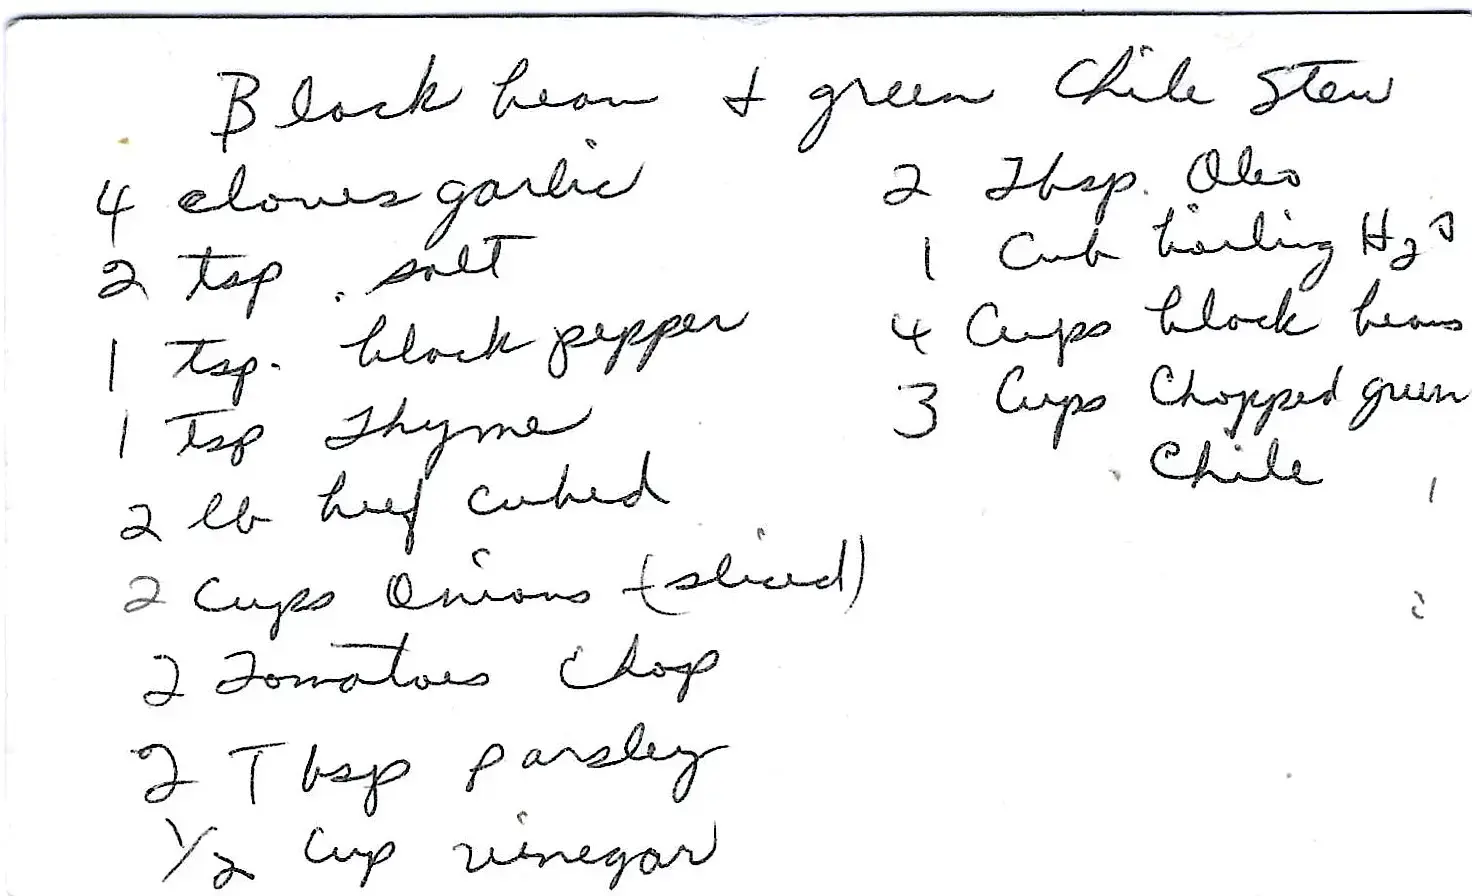 Black bean + green Chile Stew
4 cloves garlic
2 tsp. salt
1 tsp. black pepper
1 Tsp Thyme
2 lb beef cubed
2 Cups Onions (sliced)
2 Tomatoes Chop
2 Tbsp parsley
1/2 Cup vinegar
2 Tbsp. Oleo
1 Cub boiling H2O
4 Cups black beans
3 Cups Chopped green
Chile